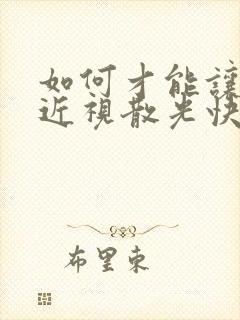 如何才能讓
近視散光快
布里東